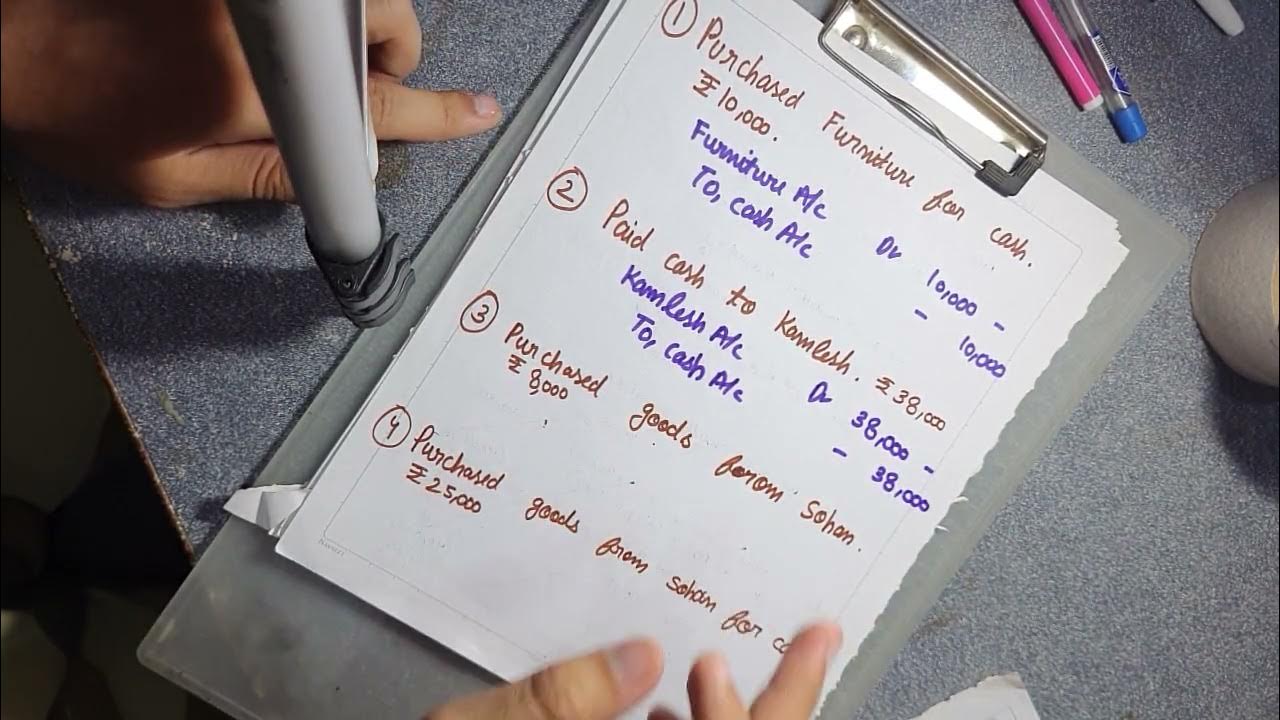 ① Purchased Furniture for cash.
₹10,000.
Furniture A/c Dr 10,000 -
To, cash A/c - 10,000
② Paid cash to Kamlesh. ₹38,000
Kamlesh A/c Dr 38,000 -
To, cash A/c - 38,000
③ Purchased goods from Sohan.
₹8,000
④ Purchased goods from sohan for
₹25,000